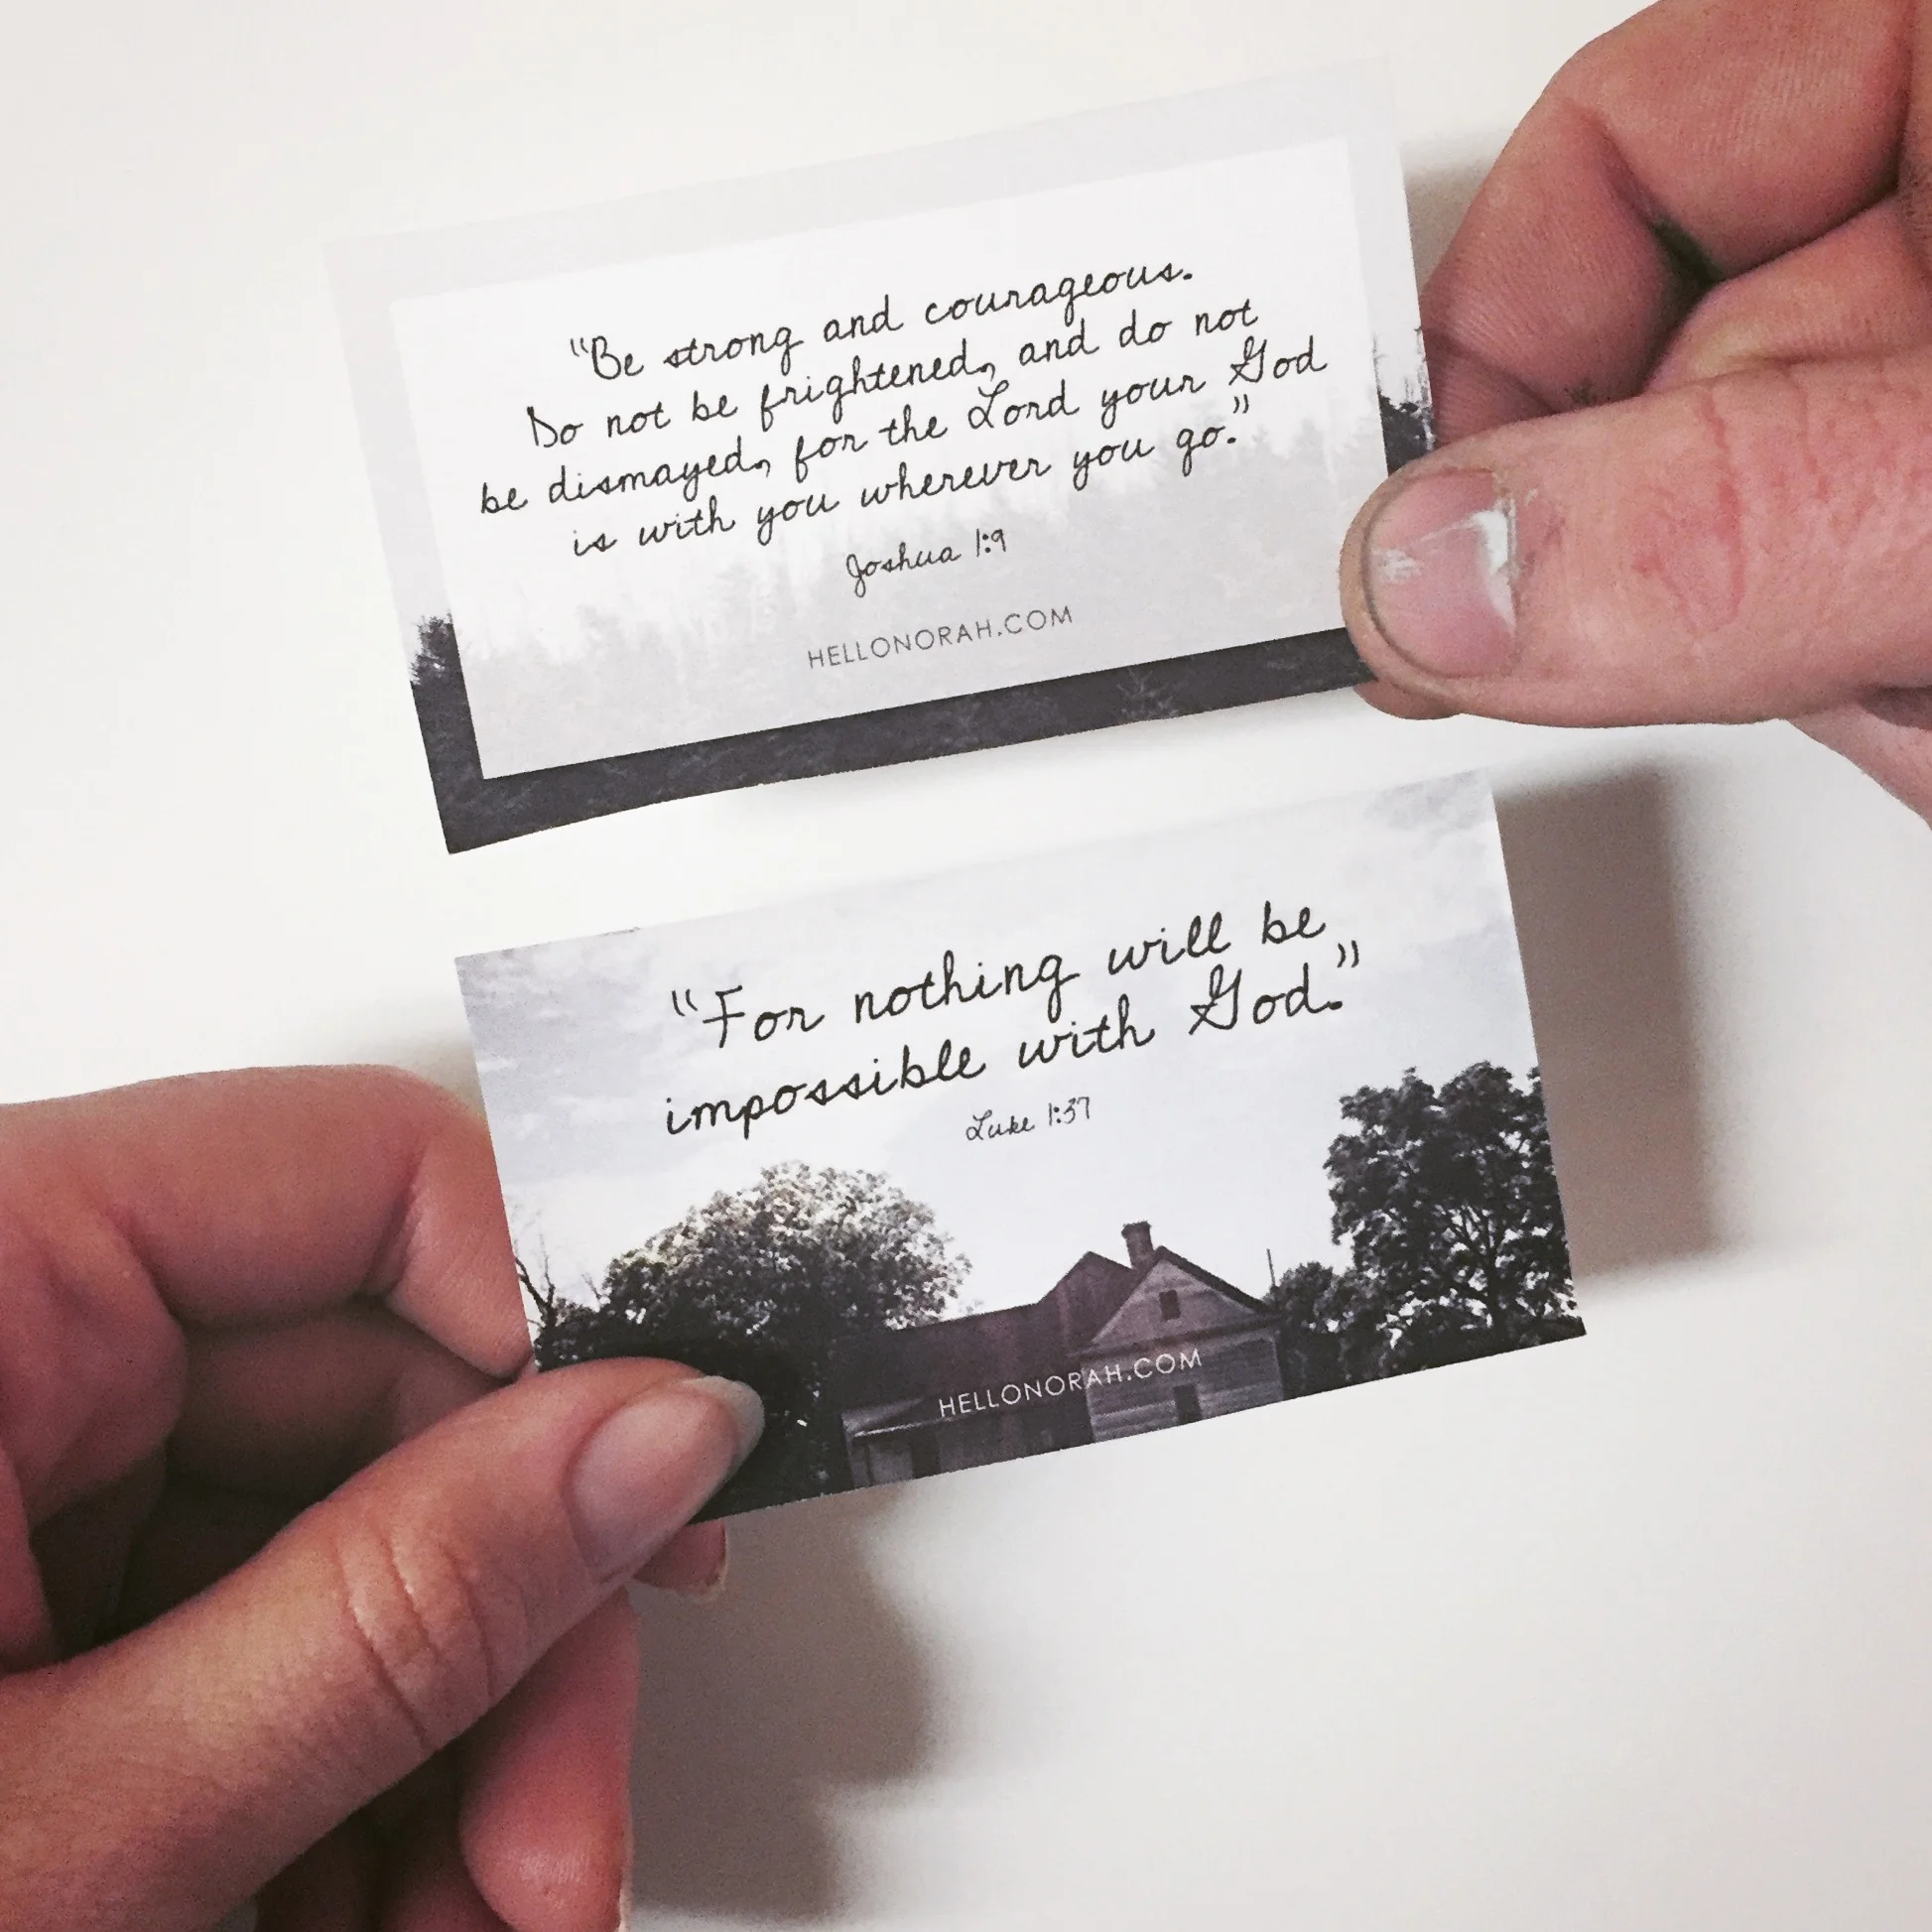 "Be strong and courageous.
Do not be frightened, and do not
be dismayed, for the Lord your God
is with you wherever you go."
Joshua 1:9
HELLONORAH.COM
"For nothing will be
impossible with God."
Luke 1:37
HELLONORAH.COM